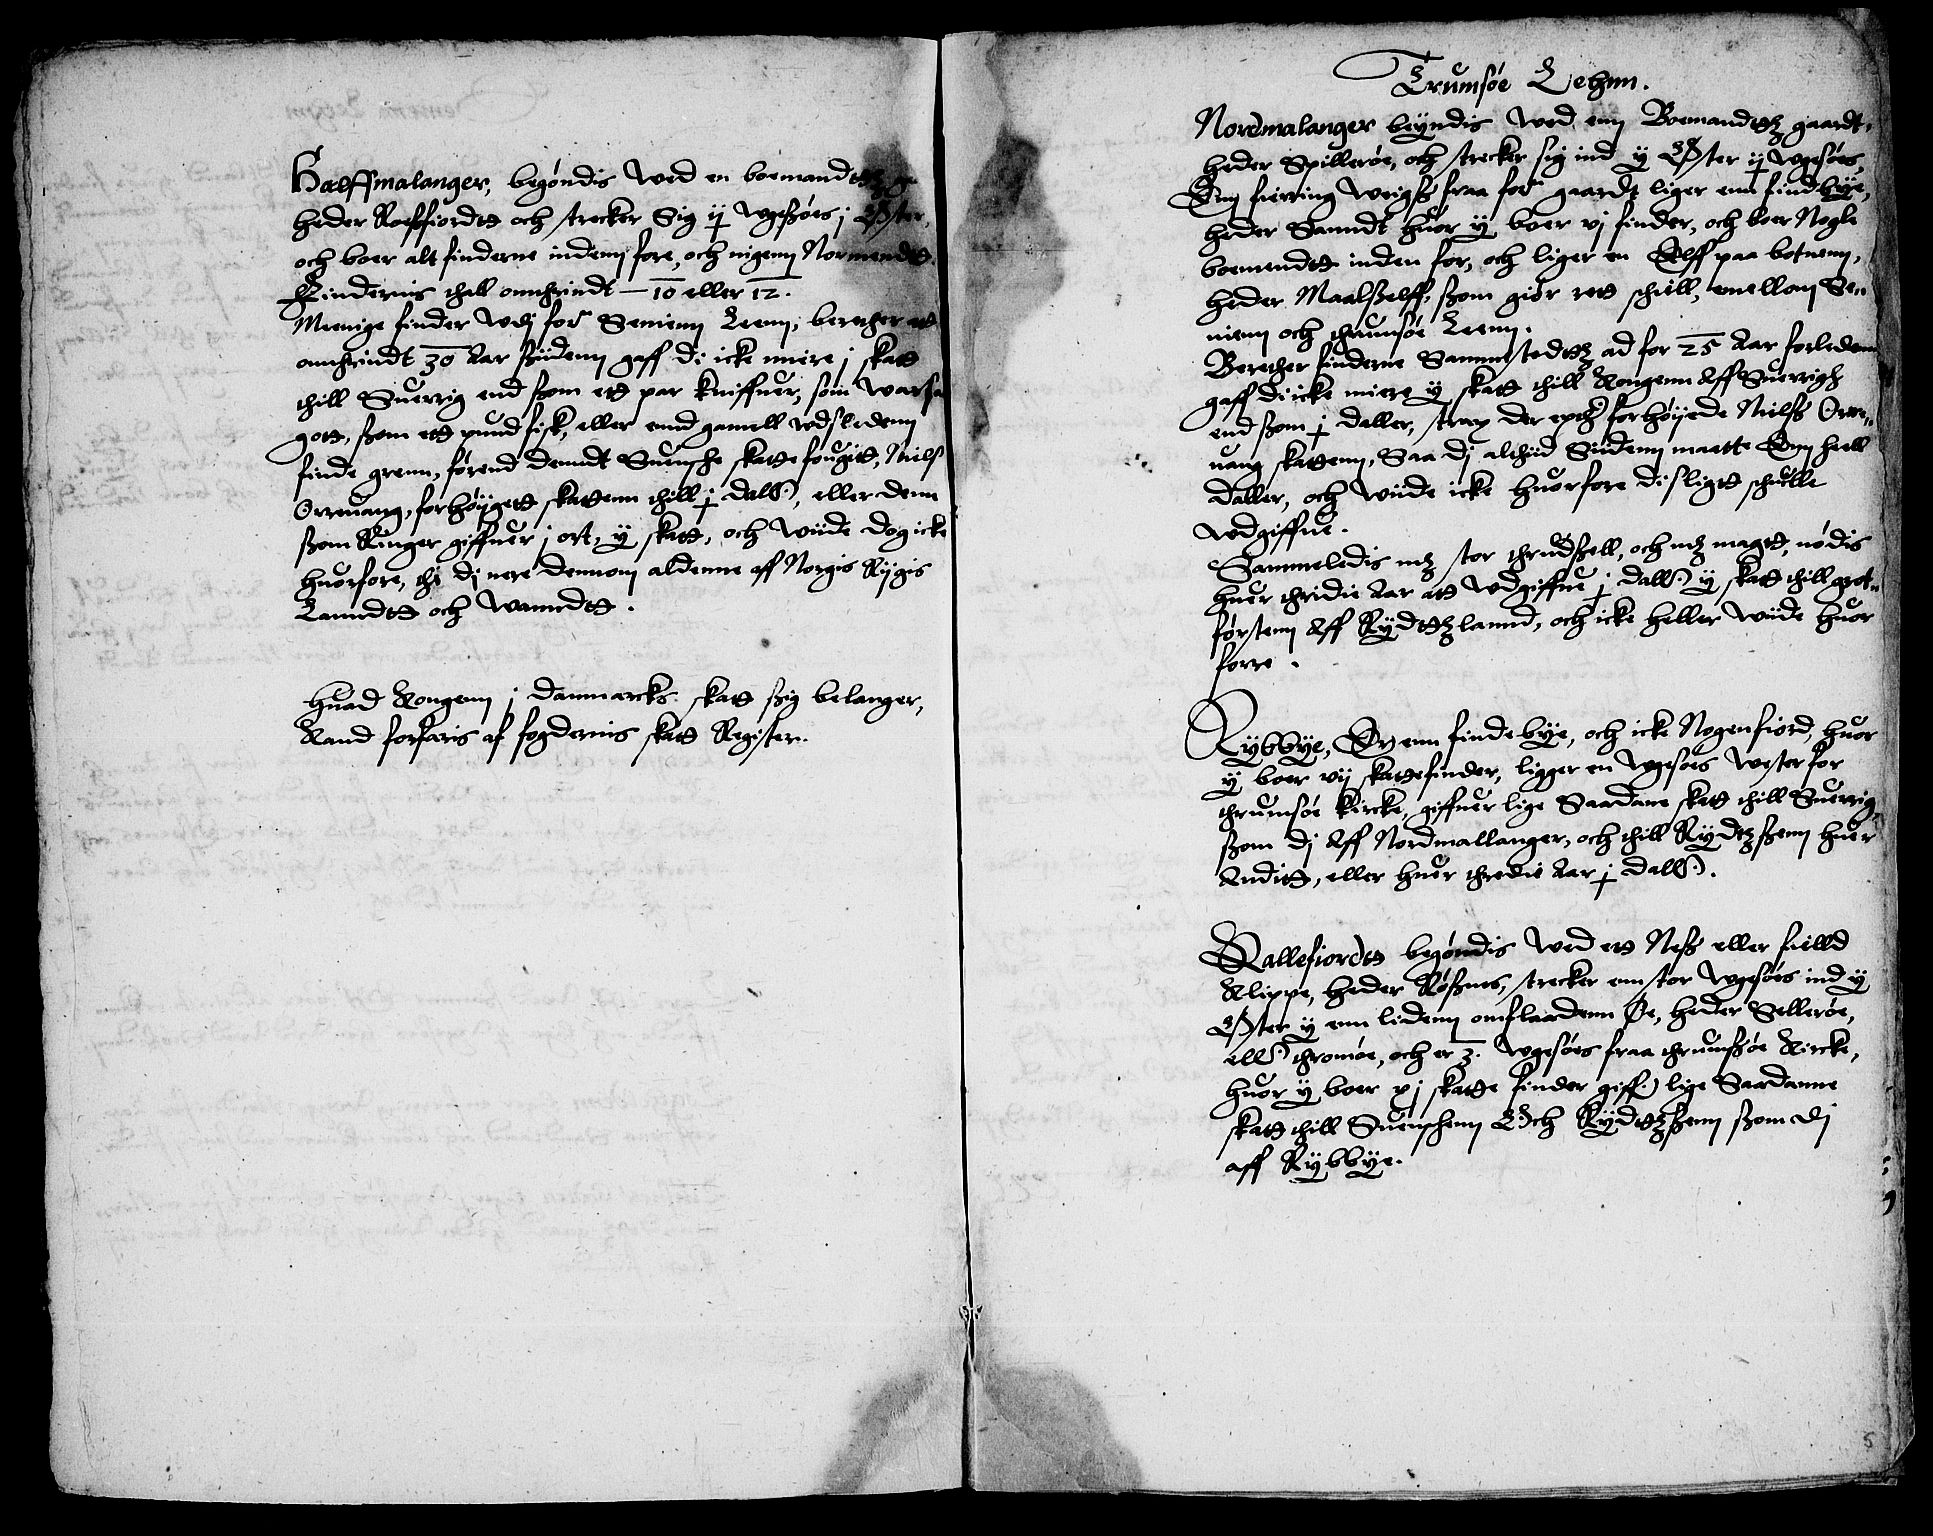 Halffmalanger, begøndis wed en boemandttz g
heder Rossfiordtt och strecker sig ij wgesøes j Øster,
och boer alt finderne indem fore, och ingenn Normendtt.
Findernis thall omthrindt — 10 eller 12.
Meenige finder wdj for: Senienn Leenn, beretther att
omthrindt 30 Aar sydenn gaff di icke miere j skatt
thill Suerrig end ßom ett par kniffuer, som war sa
gott, ßom ett pund fisk, eller end gamell wdsledenn
finde grenn, førend denndt Suensche skatte fougitt, Niels
Orreuang, forhøygett skattenn thill j dall:, eller denn
ßom Ringer giffuer j ort, y skatt, och wiide dog icke
huorfore, thi dj nere dennom aldenne aff Norgis Rygis
Lanndtt och wanndtt.
Huad Kongenn j Danmarcks skatt ßig belanger,
Kand forfaris af fogdernis skatt Register.
Trumsøe Lehnn.
Nordmalanger beyndis wed enn Boemandttz gaardt,
heder Spillerøe, och strecker sig ind y Øster ij wgesøes,
Enn fierring weigs fraa for: gaardt liger enn findbye,
heder Sanndt huor y boer vj finder, och boer Nogle
boemendtt inden for, och liger en Elff paa botnenn,
heder Maalßelff, ßom giør rett schell, emellom Se-
nienn och thrumsøe Leenn.
Beretther finderne Sammestedttz ad for 25 Aar forledenn
gaff di icke miere y skatt thill Kongenn Aff Suerrigh
end ßom j daller, strax der epth: forhøyede Nielß Orre-
uang skattenn, Saa dj altiid Sidenn maatte Enn heell
daller, och wiide icke huorfore disligtt schulle
wdgiffue.
Sammeledis mz stor thrudßell, och mz magtt, nødis
huer thridie Aar att wdgiffue j dall: y skatt thill grot-
førstenn Aff Rydttzlannd, och icke heller wiide huor
forre.
Rybbye, Er enn finde bye, och icke Nogen fiord, huor
y boer vij skattefinder, ligger en wgesøes wester for
thrumsøe Kircke, giffuer lige Saadane skatt thill Suerrig,
ßom dj Aff Nordmallanger, och thill Rydtzßenn huer
Anditt, eller huer thredie Aar j dall:.
Ballefiordtt begøndis wed ett Neß eller fielld
Klippe, heder Røßnes, strecker enn stor wgesøes ind y
Øster y enn lidenn omflaadenn Øe, heder Sellerøe,
ell: thromøe, och er 3. wgesøes fraa thrumßøe Kircke,
huor y boer xj skatte finder giff:) lige Saadanne
skatt thill Suenschenn Och Rydttzßenn ßom dj
aff Rybbye.
5